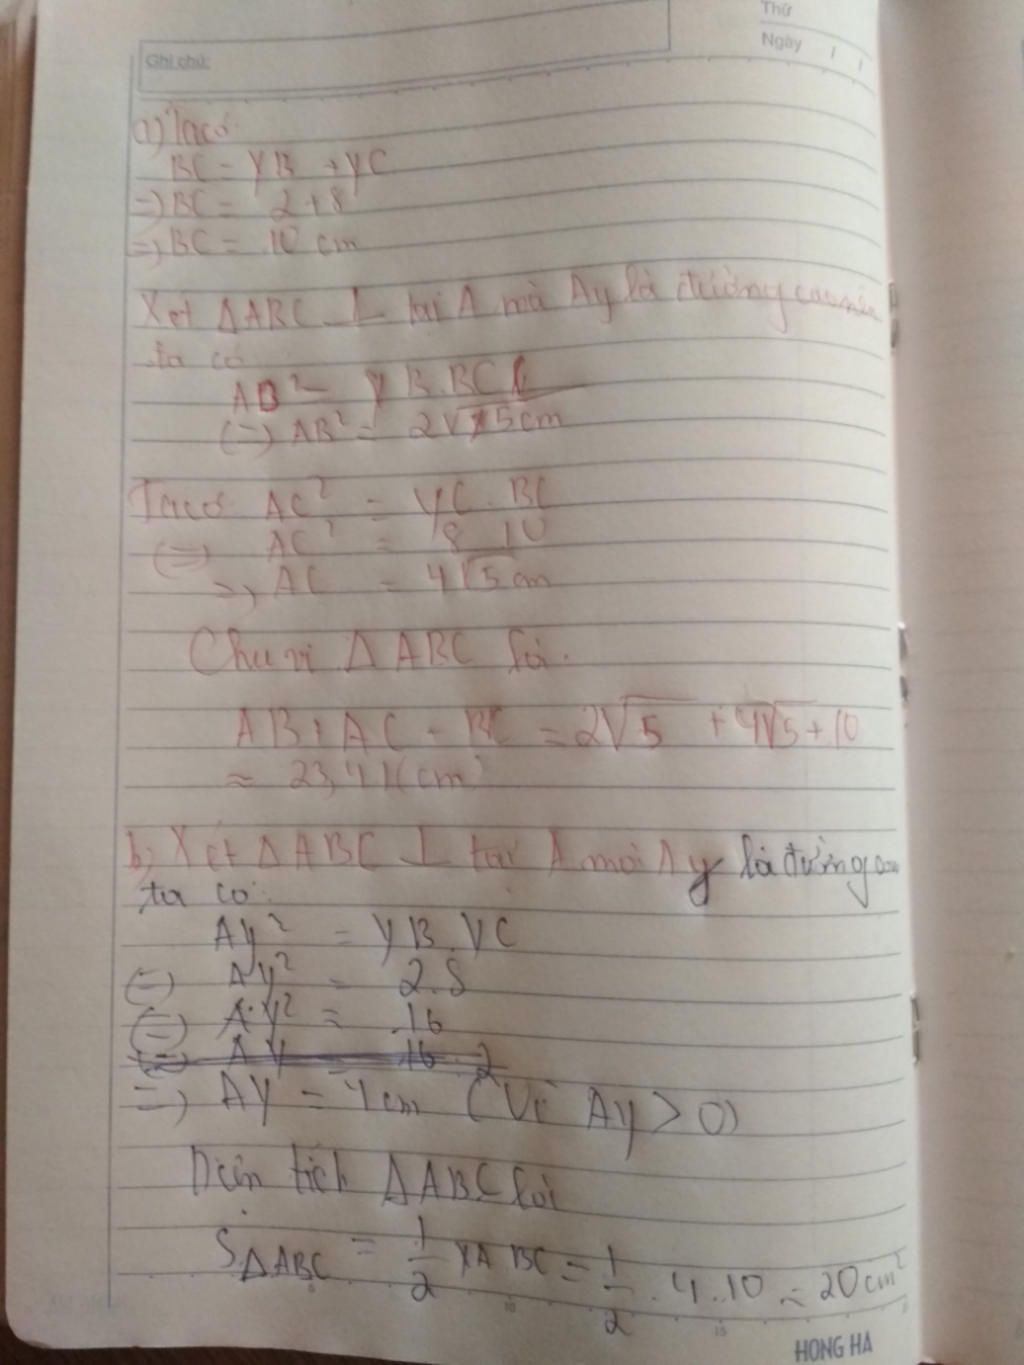 Thứ
Ngày / /
Ghi chú:
a) Ta có:
BC = YB + YC
=> BC = 2+8
=> BC = 10 cm
Xét ΔABC ⊥ tại A mà Ay là đường cao nên
ta có
AB² = YB.BC
(=) AB² = 2√5cm
Ta có AC² = YC . BC
(=) AC² = 8 10
=> AC = 4√5cm
Chu vi ΔABC là.
AB + AC + BC = 2√5 + 4√5 + 10
≈ 23,41(cm)
b) Xét ΔABC ⊥ tại A mà Ay là đường cao
ta có:
Ay² = YB.YC
(=) AY² = 2.8
(=) AY² = 16
=> AY = 4cm (Vì Ay > 0)
Diện tích ΔABC là
SΔABC = 1/2 YA BC = 1/2 . 4 . 10 = 20cm²
HONG HA